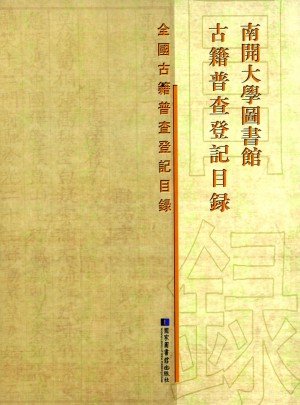 南開大學圖書館
古籍普查登記目録
全國古籍普查登記目録
國家圖書館出版社
録